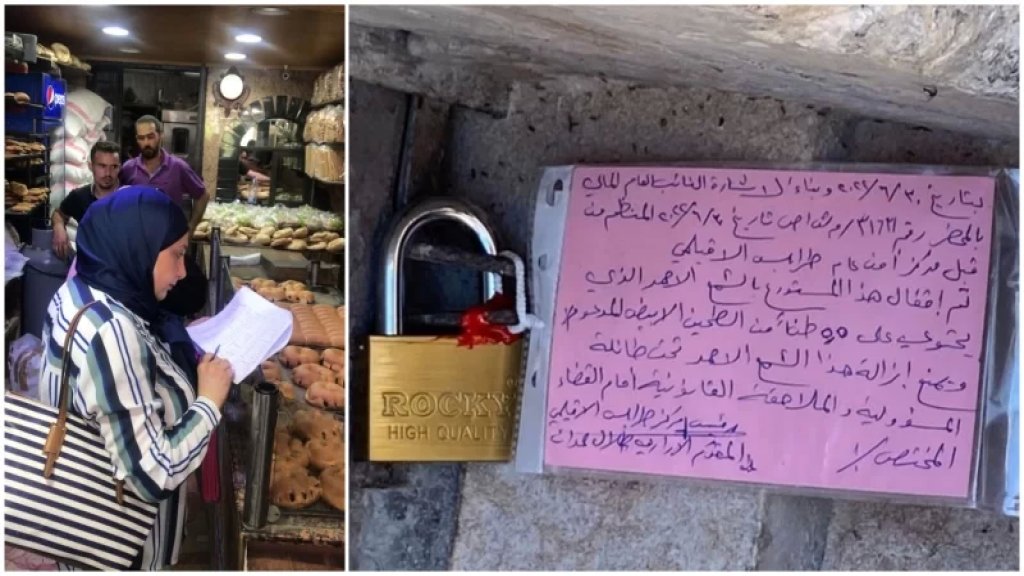 pepsi
ROCKY
HIGH QUALITY
بتاريخ ٢٠٢٢/٦/٣٠ وبناءً لاشارة النائب العام المالي
بالمحضر رقم ٣١٦٢١/ تاريخ ٢٠٢٢/٦/٣٠ المنظم من
قبل مركز أمن عام طرابلس الاقليمي
تم إقفال هذا المستودع بالشمع الاحمر الذي
يحتوي على ٥٥ طناً من الطحين الابيض المدعوم
ويمنع إزالة هذا الشمع الاحمر تحت طائلة
المسؤولية والملاحقة القانونية أمام القضاء
المختص /.
رئيس مركز طرابلس الاقليمي
المقدم الاداري خطار